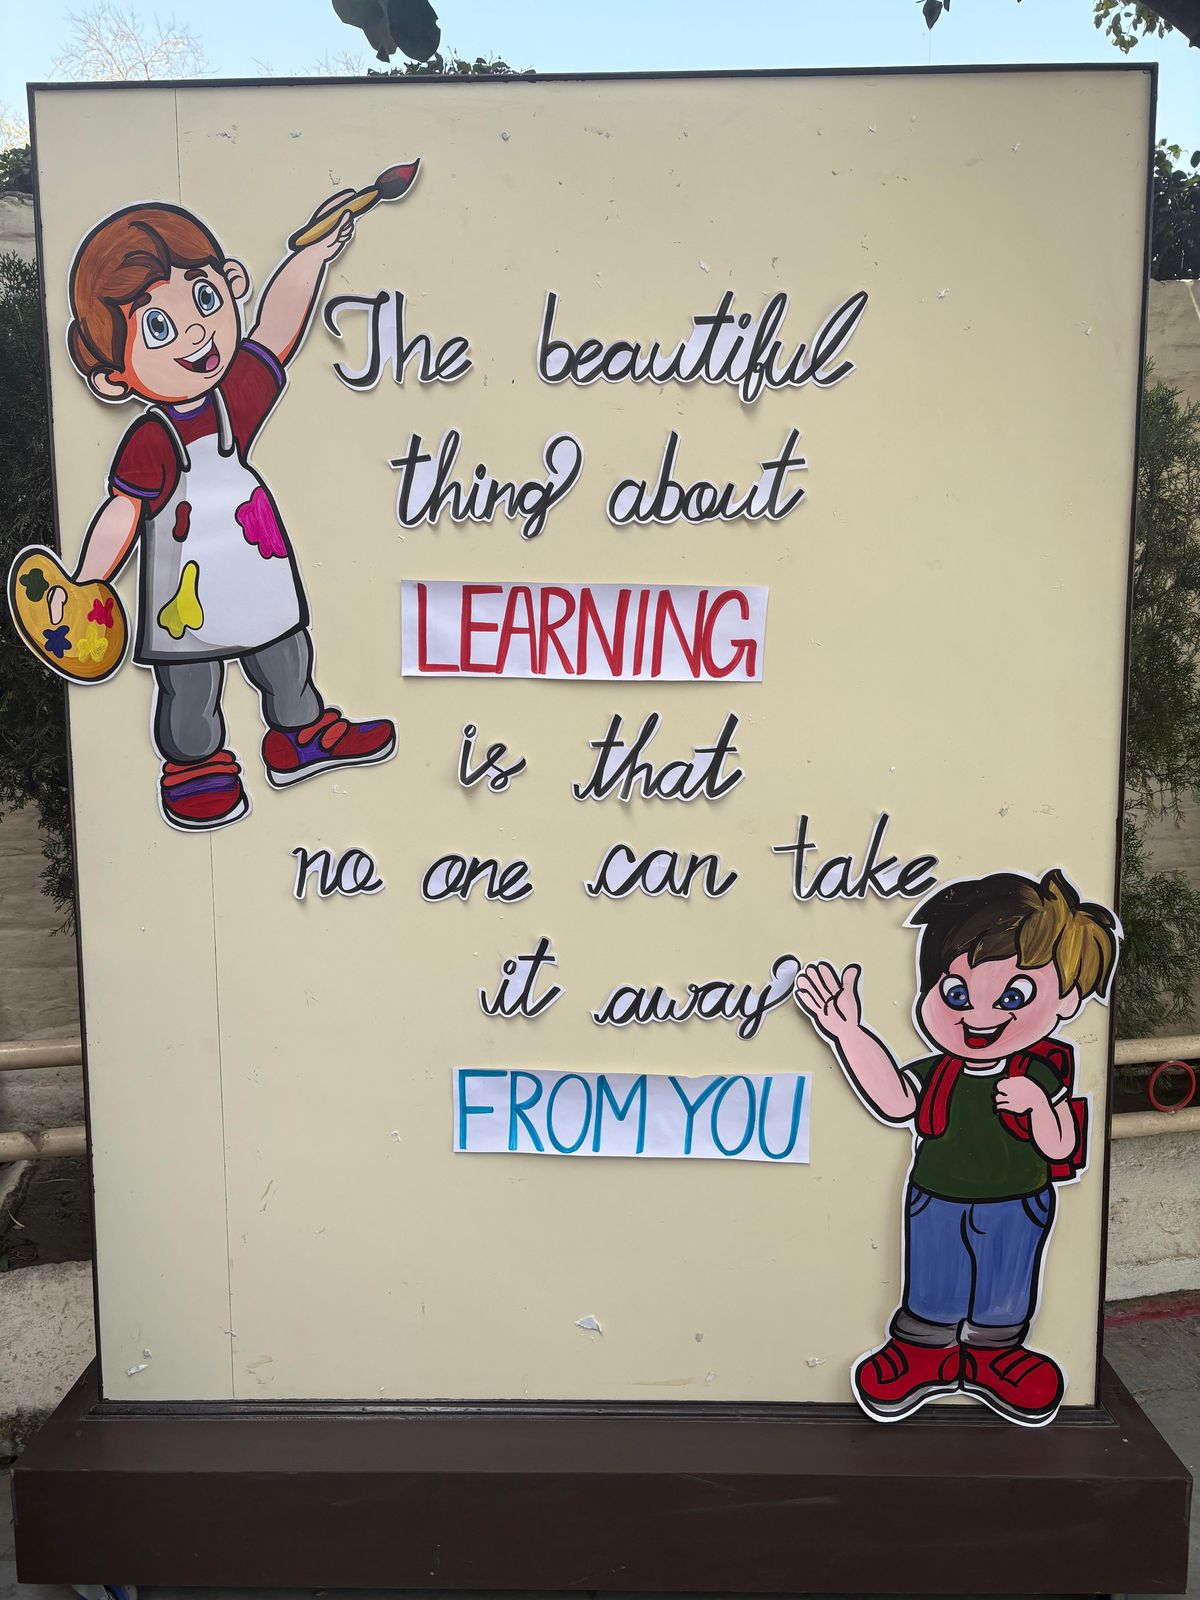 The beautiful
thing about
LEARNING
is that
no one can take
it away
FROM YOU